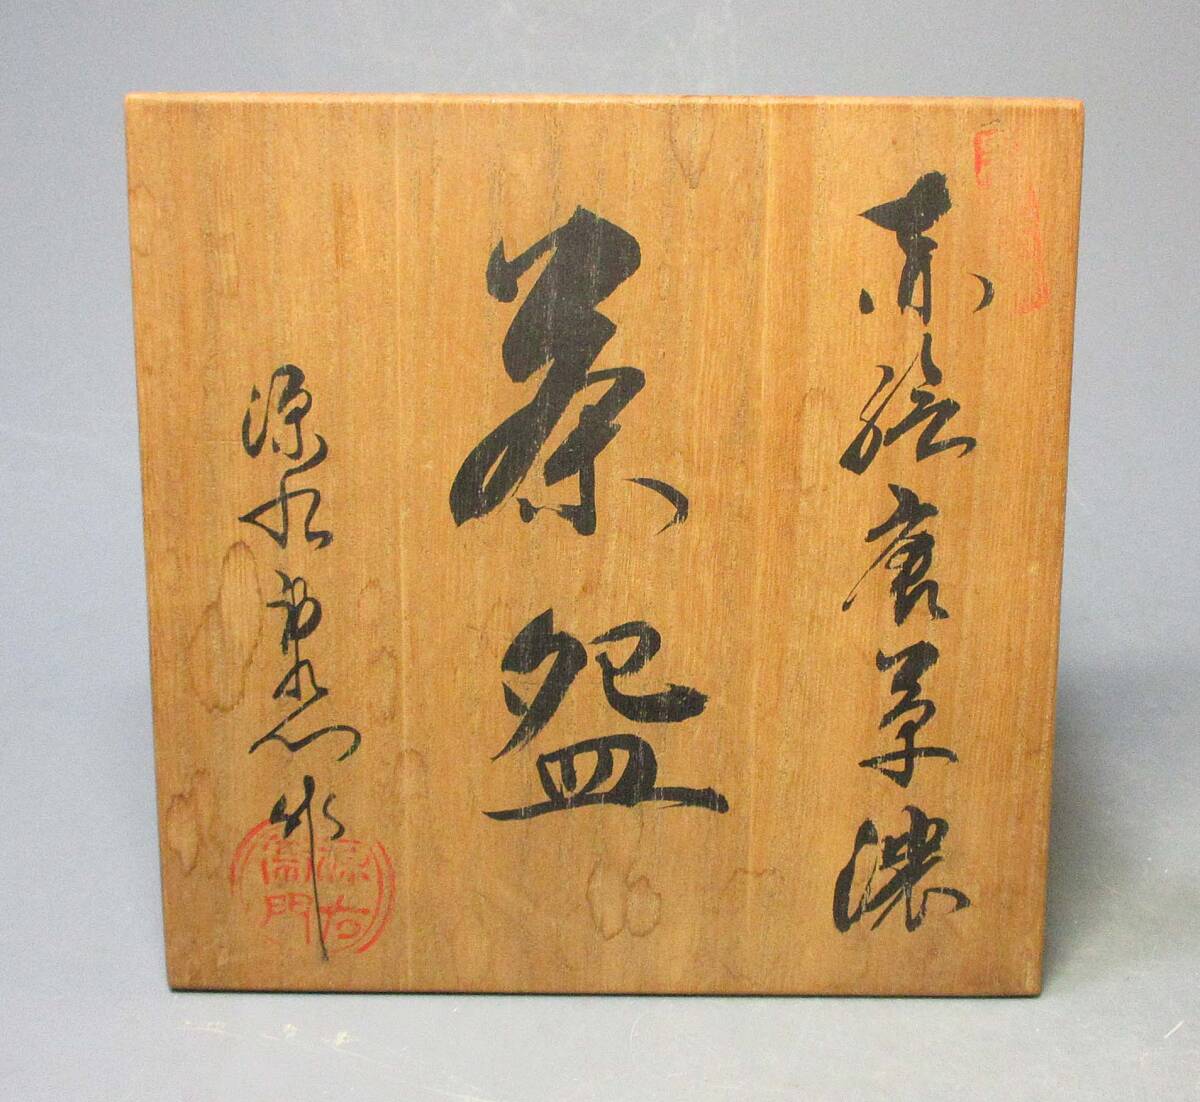 赤絵唐草濃
茶盌
源右衛門作
源右衛門